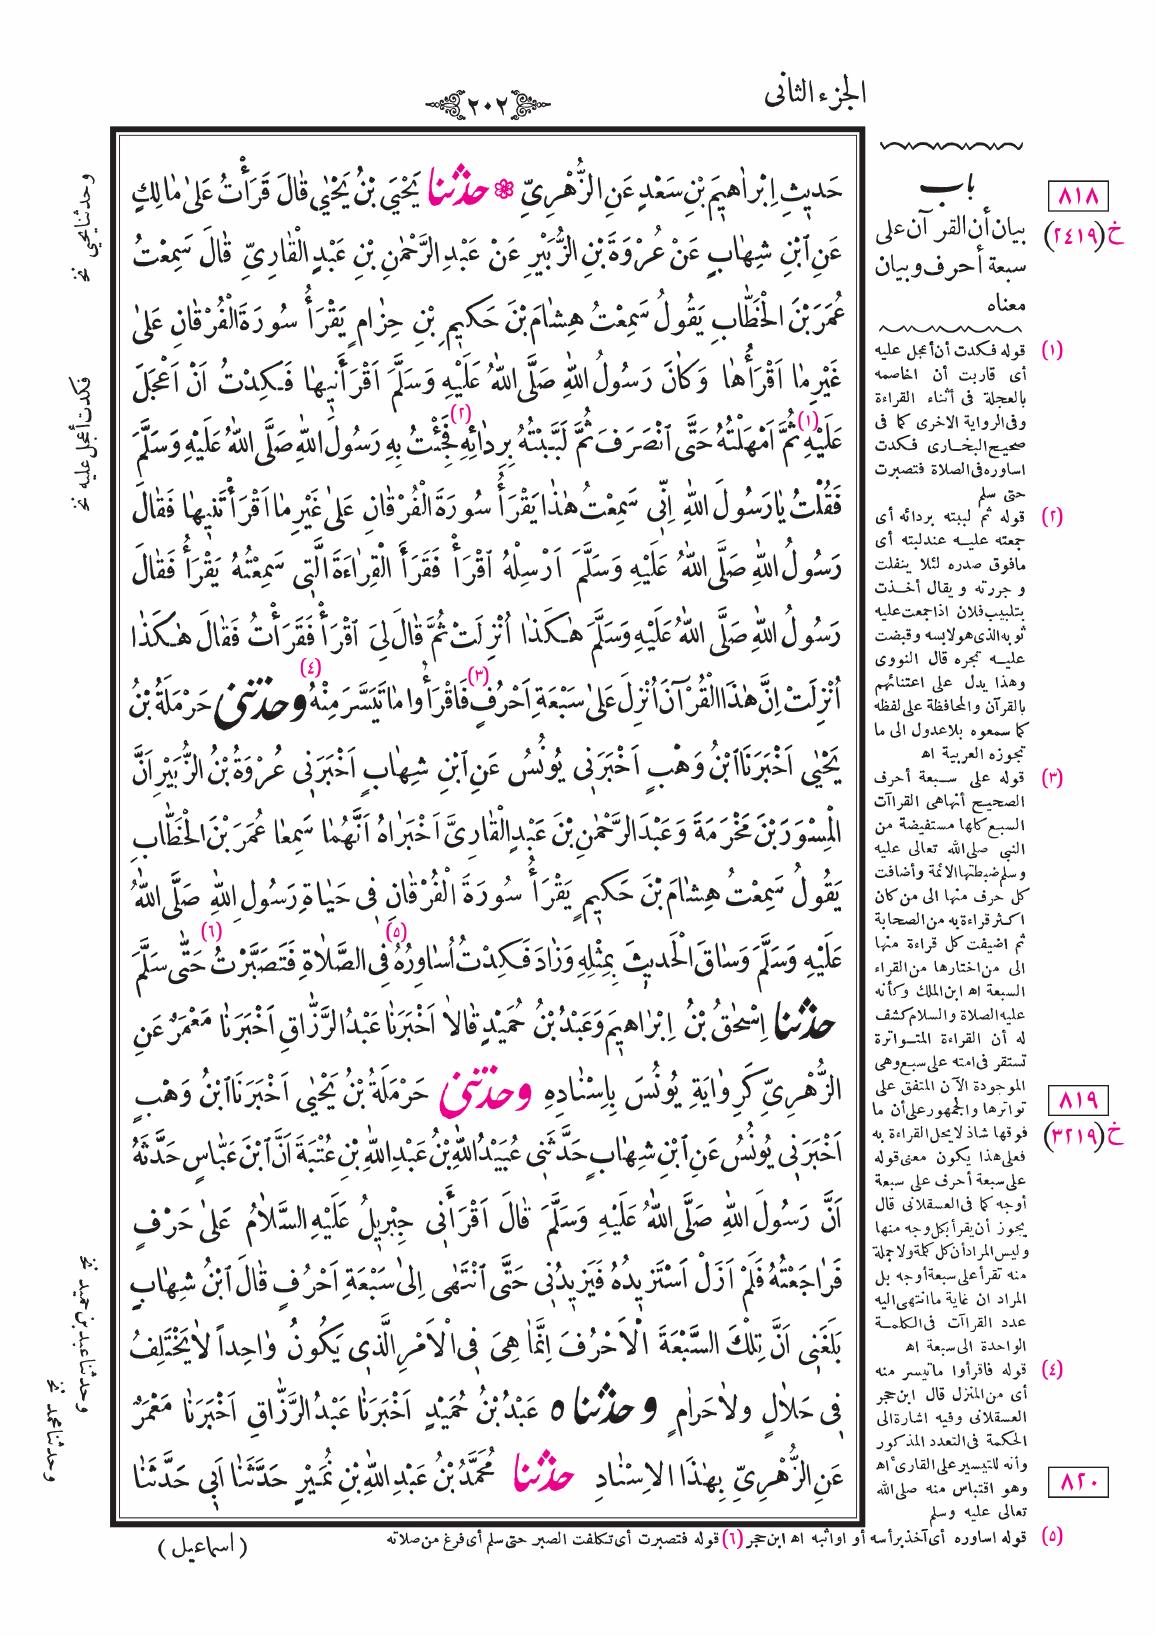 الجزء الثانى
٢٠٢
حَديثِ اِبْراهيمَ بْنِ سَعْدٍ عَنِ الزُّهْرِىِّ ❁ حدثنا يَحْيَى بْنُ يَحْيٰى قالَ قَرَأْتُ عَلىٰ مالِكٍ
عَنِ ابْنِ شِهابٍ عَنْ عُرْوَةَ بْنِ الزُّبَيْرِ عَنْ عَبْدِ الرَّحْمٰنِ بْنِ عَبْدٍ الْقارِىِّ قالَ سَمِعْتُ
عُمَرَ بْنَ الْخَطّابِ يَقُولُ سَمِعْتُ هِشامَ بْنَ حَكيمِ بْنِ حِزامٍ يَقْرَأُ سُورَةَ الْفُرْقانِ عَلىٰ
غَيْرِ ما اَقْرَأُها وَكانَ رَسُولُ اللهِ صَلَّى اللهُ عَلَيْهِ وَسَلَّمَ اَقْرَأَنيها فَكِدْتُ اَنْ اَعْجَلَ
عَلَيْهِ (١) ثُمَّ اَمْهَلْتُهُ حَتَّى انْصَرَفَ ثُمَّ لَبَّبْتُهُ بِرِدائِهِ (٢) فَجِئْتُ بِهِ رَسُولَ اللهِ صَلَّى اللهُ عَلَيْهِ وَسَلَّمَ
فَقُلْتُ يا رَسُولَ اللهِ اِنّى سَمِعْتُ هٰذا يَقْرَأُ سُورَةَ الْفُرْقانِ عَلىٰ غَيْرِ ما اَقْرَأْتَنيها فَقالَ
رَسُولُ اللهِ صَلَّى اللهُ عَلَيْهِ وَسَلَّمَ اَرْسِلْهُ اقْرَأْ فَقَرَأَ الْقِراءَةَ الَّتى سَمِعْتُهُ يَقْرَأُ فَقالَ
رَسُولُ اللهِ صَلَّى اللهُ عَلَيْهِ وَسَلَّمَ هٰكَذا اُنْزِلَتْ ثُمَّ قالَ لِىَ اقْرَأْ فَقَرَأْتُ فَقالَ هٰكَذا
اُنْزِلَتْ اِنَّ هٰذَا الْقُرْآنَ اُنْزِلَ عَلىٰ سَبْعَةِ اَحْرُفٍ (٣) فَاقْرَأُوا ما تَيَسَّرَ مِنْهُ (٤) وحدثنى حَرْمَلَةُ بْنُ
يَحْيٰى اَخْبَرَنَا ابْنُ وَهْبٍ اَخْبَرَنى يُونُسُ عَنِ ابْنِ شِهابٍ اَخْبَرَنى عُرْوَةُ بْنُ الزُّبَيْرِ اَنَّ
الْمِسْوَرَ بْنَ مَخْرَمَةَ وَعَبْدَ الرَّحْمٰنِ بْنَ عَبْدٍ الْقارِىَّ اَخْبَراهُ اَنَّهُما سَمِعا عُمَرَ بْنَ الْخَطّابِ
يَقُولُ سَمِعْتُ هِشامَ بْنَ حَكيمٍ يَقْرَأُ سُورَةَ الْفُرْقانِ فى حَياةِ رَسُولِ اللهِ صَلَّى اللهُ
عَلَيْهِ وَسَلَّمَ وَساقَ الْحَديثَ بِمِثْلِهِ وَزادَ فَكِدْتُ اُساوِرُهُ (٥) فِى الصَّلاةِ فَتَصَبَّرْتُ (٦) حَتّٰى سَلَّمَ
حدثنا اِسْحٰقُ بْنُ اِبْراهيمَ وَعَبْدُ بْنُ حُمَيْدٍ قالا اَخْبَرَنا عَبْدُ الرَّزّاقِ اَخْبَرَنا مَعْمَرٌ عَنِ
الزُّهْرِىِّ كَرِوايَةِ يُونُسَ بِاِسْنادِهِ وحدثنى حَرْمَلَةُ بْنُ يَحْيٰى اَخْبَرَنَا ابْنُ وَهْبٍ
اَخْبَرَنى يُونُسُ عَنِ ابْنِ شِهابٍ حَدَّثَنى عُبَيْدُ اللهِ بْنُ عَبْدِ اللهِ بْنِ عُتْبَةَ اَنَّ ابْنَ عَبّاسٍ حَدَّثَهُ
اَنَّ رَسُولَ اللهِ صَلَّى اللهُ عَلَيْهِ وَسَلَّمَ قالَ اَقْرَأَنى جِبْريلُ عَلَيْهِ السَّلامُ عَلىٰ حَرْفٍ
فَراجَعْتُهُ فَلَمْ اَزَلْ اَسْتَزيدُهُ فَيَزيدُنى حَتَّى انْتَهٰى اِلىٰ سَبْعَةِ اَحْرُفٍ قالَ ابْنُ شِهابٍ
بَلَغَنى اَنَّ تِلْكَ السَّبْعَةَ الْاَحْرُفَ اِنَّما هِىَ فِى الْاَمْرِ الَّذى يَكُونُ واحِداً لا يَخْتَلِفُ
فى حَلالٍ ولا حَرامٍ وحدثناه عَبْدُ بْنُ حُمَيْدٍ اَخْبَرَنا عَبْدُ الرَّزّاقِ اَخْبَرَنا مَعْمَرٌ
عَنِ الزُّهْرِىِّ بِهٰذَا الاِسْنادِ حدثنا مُحَمَّدُ بْنُ عَبْدِ اللهِ بْنِ نُمَيْرٍ حَدَّثَنا اَبى حَدَّثَنا
( اسماعيل )
باب
بيان أن القرآن على
سبعة أحرف وبيان
معناه
٨١٨
خ (٢٤١٩)
(١) قوله فكدت أن أعجل عليه
أى قاربت أن اخاصمه
بالعجلة فى أثناء القراءة
وفى الرواية الاخرى كما فى
صحيح البخارى فكدت
اساوره فى الصلاة فتصبرت
حتى سلم
(٢) قوله ثم لببته بردائه أى
جمعته عليه عند لبته أى
مافوق صدره لئلا ينفلت
و جررته و يقال أخذت
بتلبيب فلان اذا جمعت عليه
ثوبه الذى هو لابسه وقبضت
عليه تجره قال النووى
وهذا يدل على اعتنائهم
بالقرآن والمحافظة على لفظه
كما سمعوه بلا عدول الى ما
تجوزه العربية اه
(٣) قوله على سبعة أحرف
الصحيح أنها هى القراآت
السبع كلها مستفيضة من
النبى صلى الله تعالى عليه
وسلم ضبطتها الائمة وأضافت
كل حرف منها الى من كان
اكثر قراءة به من الصحابة
ثم اضيفت كل قراءة منها
الى من اختارها من القراء
السبعة اه ابن الملك وكأنه
عليه الصلاة والسلام كشف
له أن القراءة المتواترة
تستقر فى امته على سبع وهى
الموجودة الآن المتفق على
تواترها والجمهور على أن ما
فوقها شاذ لا يحل القراءة به
فعلى هذا يكون معنى قوله
على سبعة أحرف على سبعة
أوجه كما فى العسقلانى قال
يجوز أن يقرأ بكل وجه منها
وليس المراد أن كل كلمة ولا جملة
منه تقرأ على سبعة أوجه بل
المراد ان غاية ما انتهى اليه
عدد القراآت فى الكلمة
الواحدة الى سبعة اه
(٤) قوله فاقرأوا ماتيسر منه
أى من المنزل قال ابن حجر
العسقلانى وفيه اشارة الى
الحكمة فى التعدد المذكور
وأنه للتيسير على القارئ اه
وهو اقتباس منه صلى الله
تعالى عليه وسلم
٨١٩
خ (٣٢١٩)
٨٢٠
(٥) قوله اساوره أى آخذ برأسه أو اواثبه اه ابن حجر (٦) قوله فتصبرت أى تكلفت الصبر حتى سلم أى فرغ من صلاته
وحدثنا يحيى نخ
فكدت أعجل عليه نخ
وحدثنا عبد بن حميد نخ
وحدثنا محمد نخ